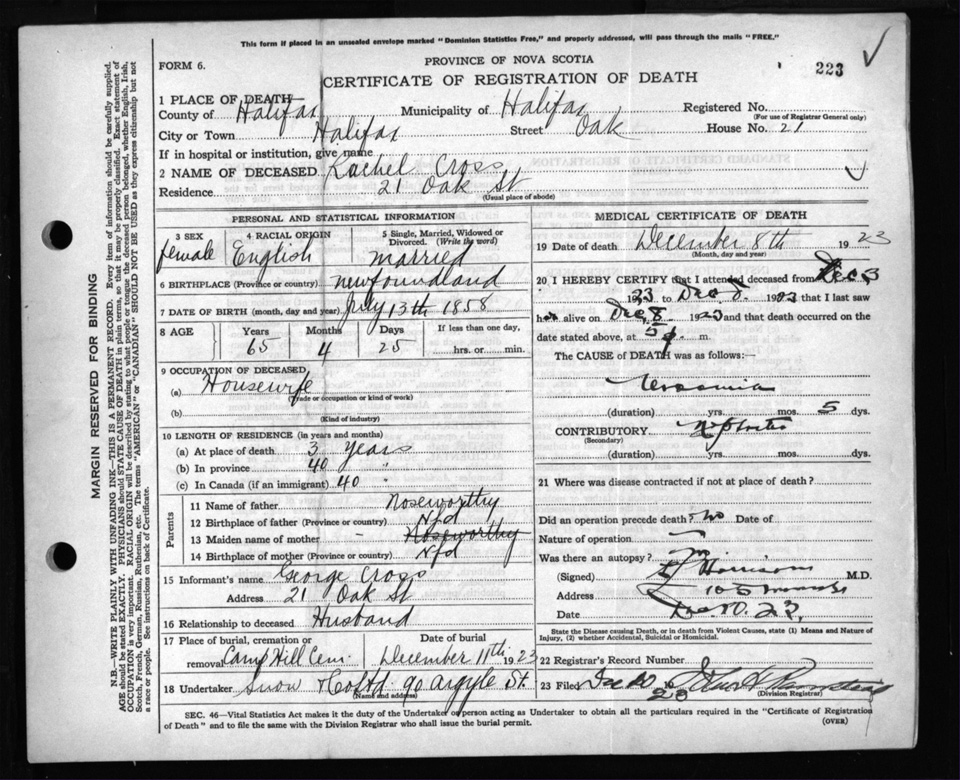 This form if placed in an unsealed envelope marked "Dominion Statistics Free," and properly addressed, will pass through the mails "FREE."
FORM 6.
PROVINCE OF NOVA SCOTIA
CERTIFICATE OF REGISTRATION OF DEATH
223
1 PLACE OF DEATH
County of Halifax Municipality of Halifax Registered No.
(For use of Registrar General only)
City or Town Halifax Street Oak House No. 21
If in hospital or institution, give name
2 NAME OF DECEASED Rachel Cross
Residence 21 Oak St
(Usual place of abode)
PERSONAL AND STATISTICAL INFORMATION
3 SEX 4 RACIAL ORIGIN 5 Single, Married, Widowed or Divorced. (Write the word)
female English married
6 BIRTHPLACE (Province or country) Newfoundland
7 DATE OF BIRTH (month, day and year) July 13th 1858
8 AGE Years Months Days If less than one day,
65 4 25 hrs. or min.
9 OCCUPATION OF DECEASED
(a) Housewife
(Trade or occupation or kind of work)
(b)
(Kind of industry)
10 LENGTH OF RESIDENCE (in years and months)
(a) At place of death 3 years
(b) In province 40 "
(c) In Canada (if an immigrant) 40 "
Parents
11 Name of father Noseworthy
12 Birthplace of father (Province or country) Nfd
13 Maiden name of mother - Noseworthy
14 Birthplace of mother (Province or country) Nfd
15 Informant's name George Cross
Address 21 Oak St
16 Relationship to deceased Husband
17 Place of burial, cremation or removal Camp Hill Cem Date of burial December 11th 1923
18 Undertaker Snow & Co Ltd 90 Argyle St.
(Name and address)
MEDICAL CERTIFICATE OF DEATH
19 Date of death December 8th 1923
(Month, day and year)
20 I HEREBY CERTIFY that I attended deceased from Dec 3
1923 to Dec 8. 1923 that I last saw
her alive on Dec. 8 1923 and that death occurred on the
date stated above, at 5 m.
The CAUSE of DEATH was as follows:—
Uraemia
(duration) yrs. mos. 5 dys.
CONTRIBUTORY Nephritis
(Secondary)
(duration) yrs. mos. dys.
21 Where was disease contracted if not at place of death?
Did an operation precede death? no Date of
Nature of operation
Was there an autopsy? no
(Signed) Morrison M.D.
Address 105
Date Dec 10. 23,
State the Disease causing Death, or in death from Violent Causes, state (1) Means and Nature of Injury, (2) whether Accidental, Suicidal or Homicidal.
22 Registrar's Record Number
23 Filed Dec 10 1923
(Division Registrar)
SEC. 46—Vital Statistics Act makes it the duty of the Undertaker or person acting as Undertaker to obtain all the particulars required in the "Certificate of Registration
of Death" and to file the same with the Division Registrar who shall issue the burial permit. (OVER)
MARGIN RESERVED FOR BINDING
N.B.—WRITE PLAINLY WITH UNFADING INK—THIS IS A PERMANENT RECORD. Every item of information should be carefully supplied.
AGE should be stated EXACTLY. PHYSICIANS should STATE CAUSE OF DEATH in plain terms, so that it may be properly classified. Exact statement of
OCCUPATION is very important. RACIAL ORIGIN will be described by stating to what people or tongue the deceased person belonged, whether English, Irish,
Scotch, French, German, Russian, Ruthenian, etc. The terms "AMERICAN" or "CANADIAN" SHOULD NOT BE USED as they express citizenship but not
a race or people. See instructions on back of Certificate.